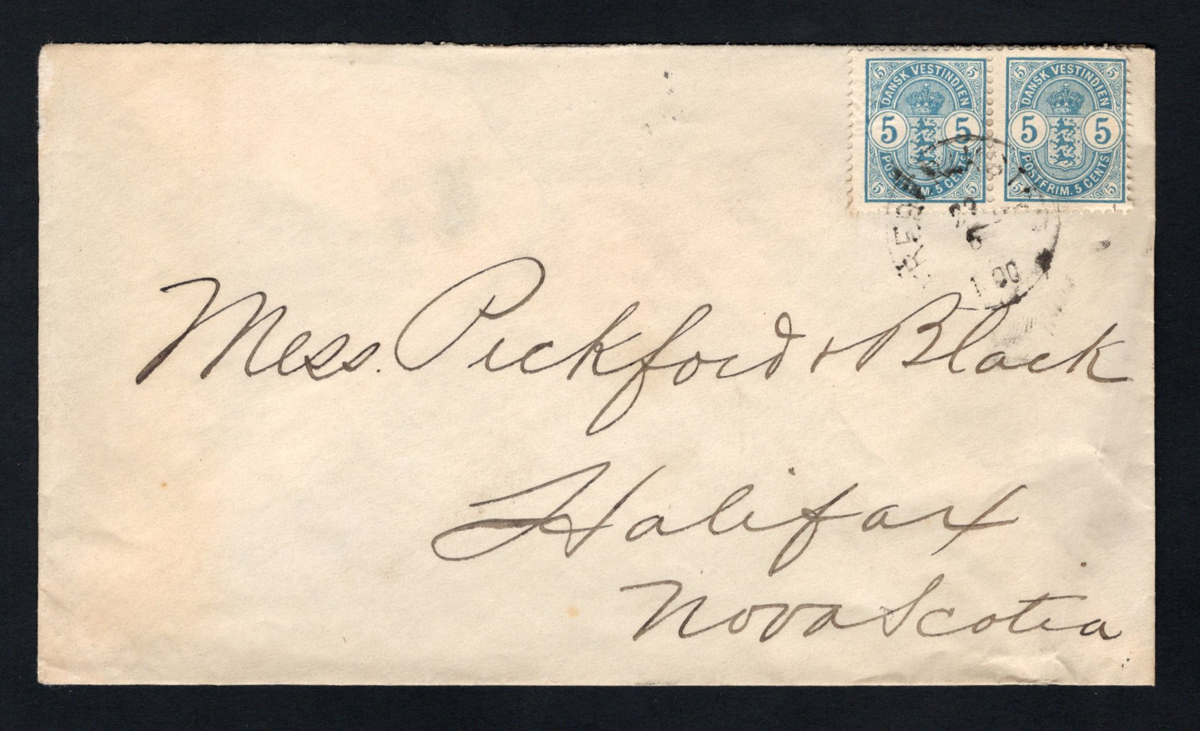 5 DANSK VESTINDIEN 5
5 5
5 POSTFRIM. 5 CENTS 5
5 DANSK VESTINDIEN 5
5 5
5 POSTFRIM. 5 CENTS 5
Mess. Pickford & Black
Halifax
Nova Scotia